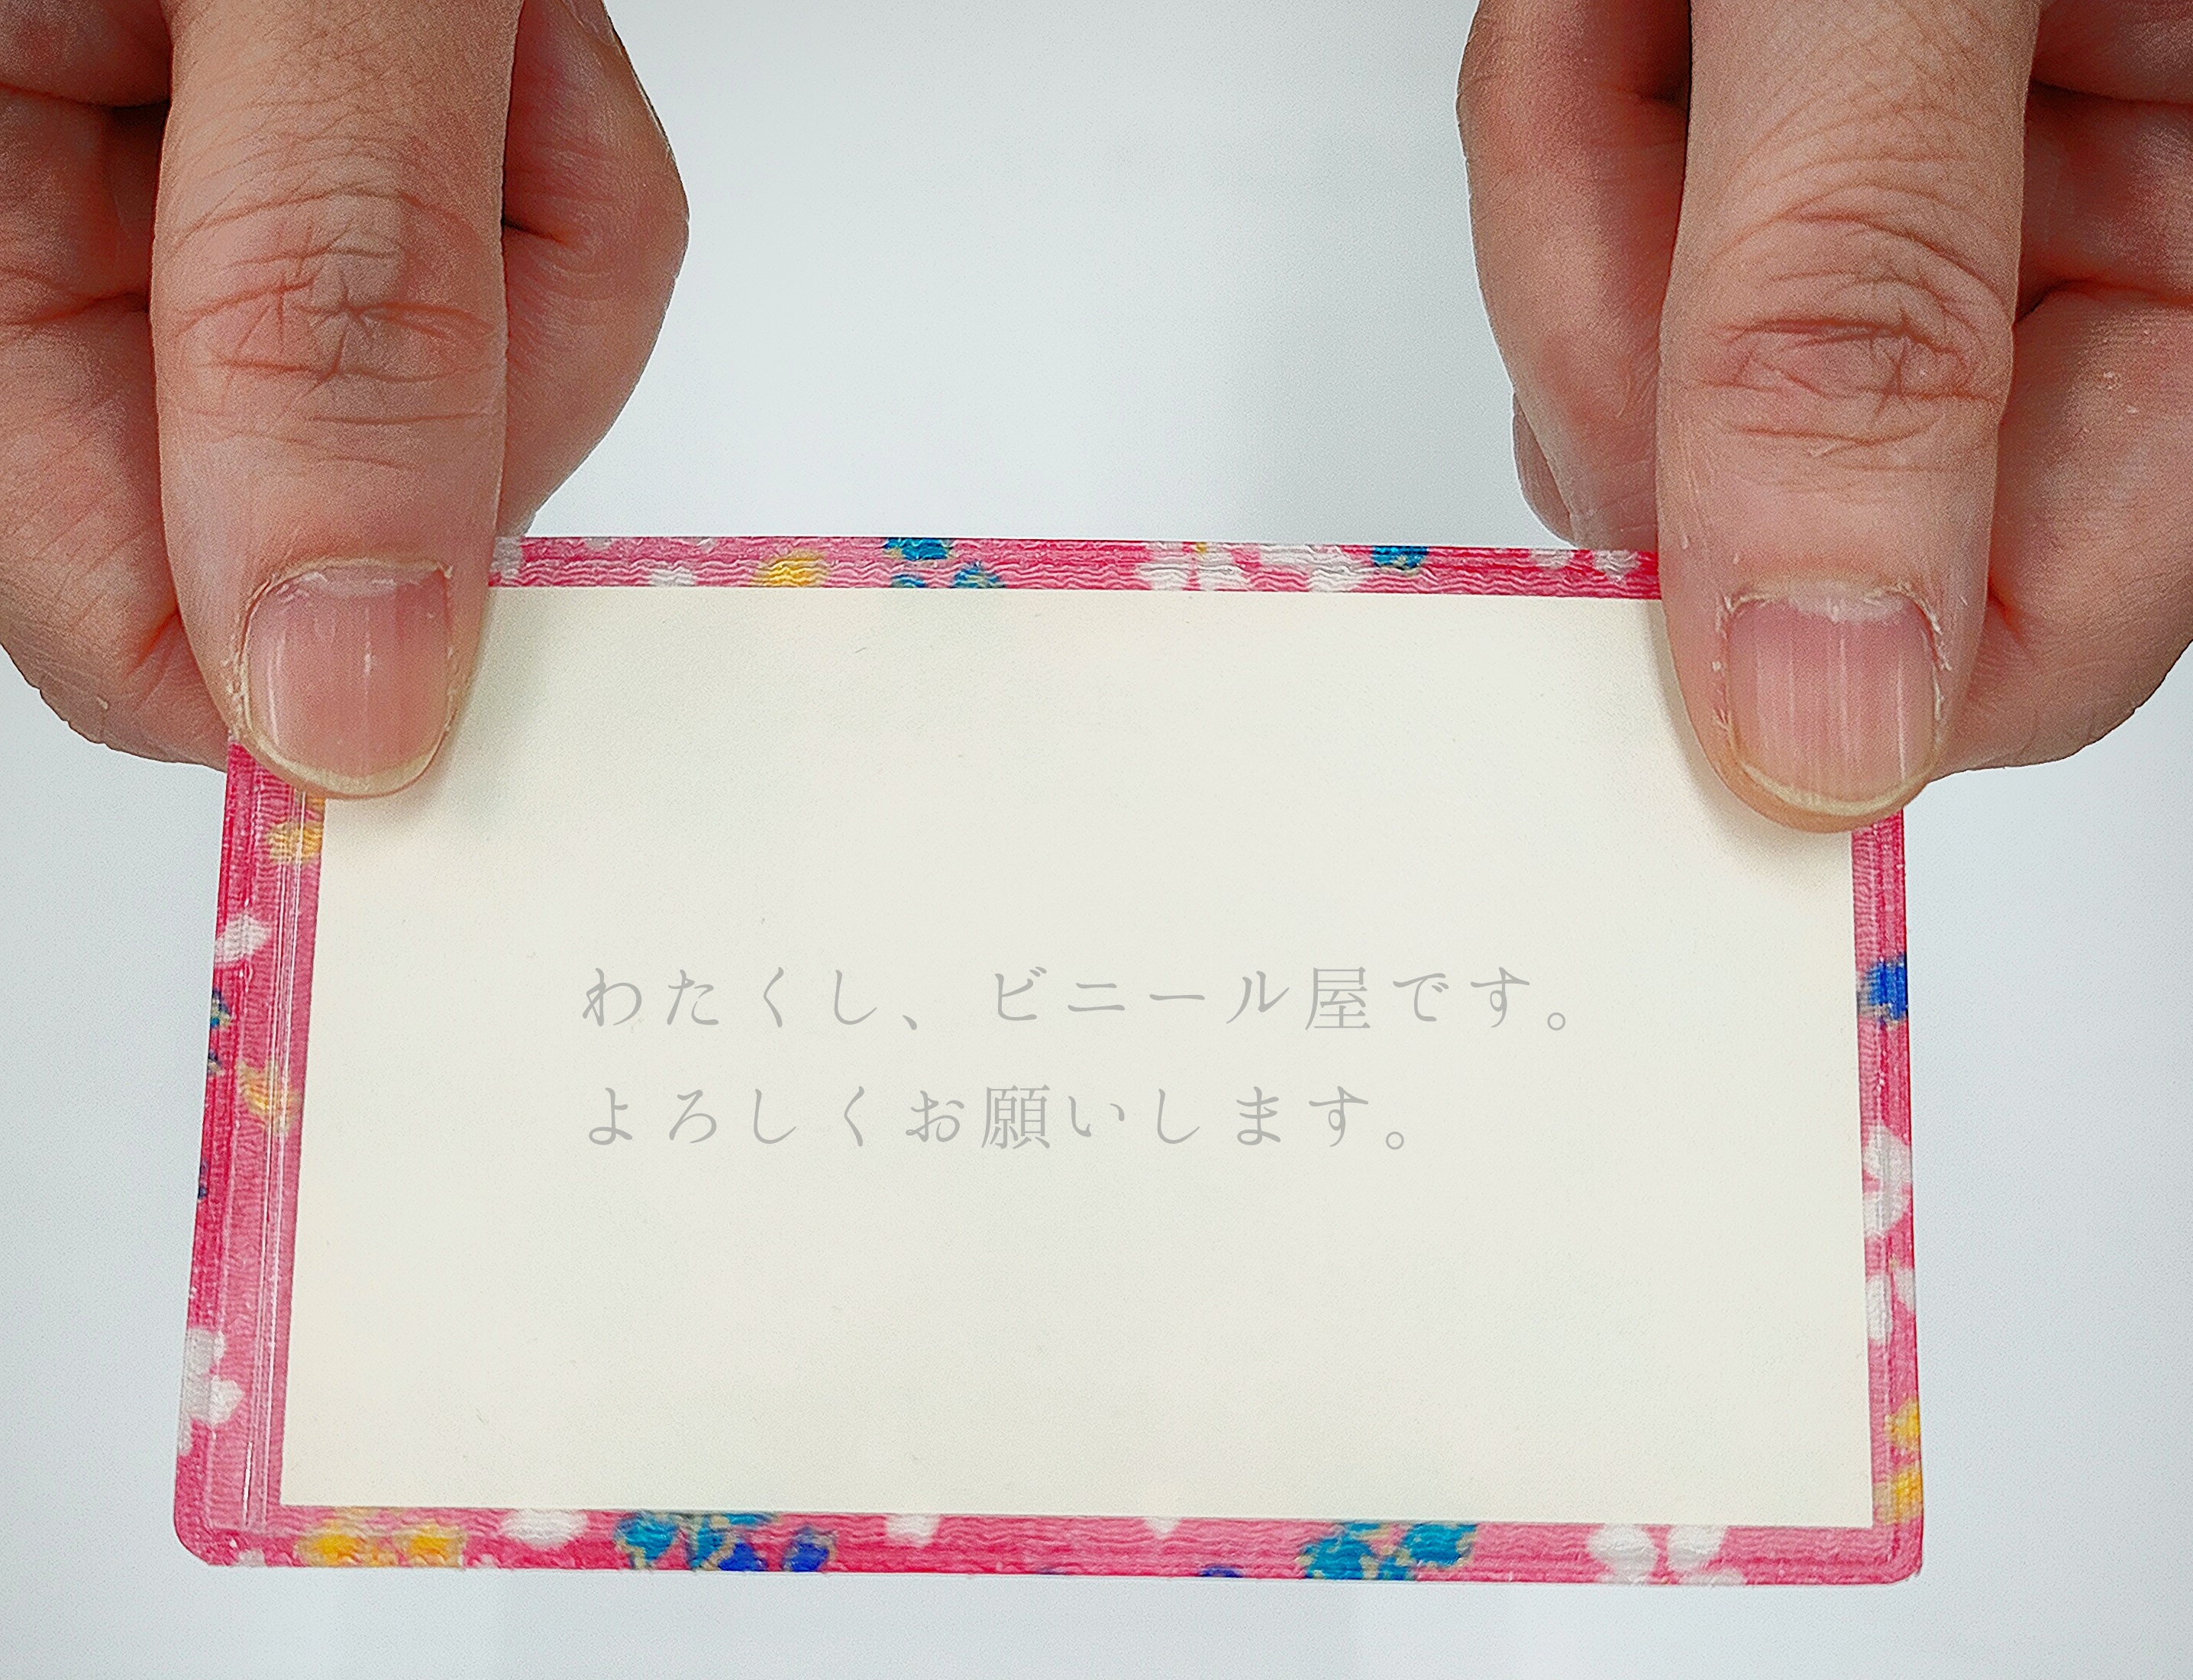 わたくし、ビニール屋です。
よろしくお願いします。